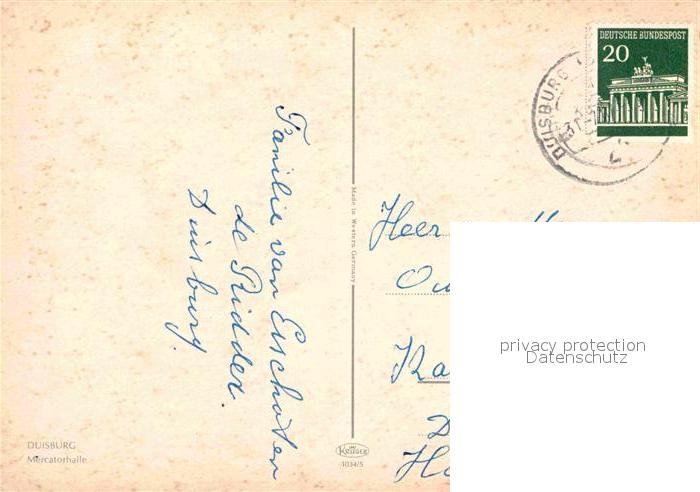 DEUTSCHE BUNDESPOST
20
DUISBURG
Familie van Esschoten
de Ridder.
Duisburg.
Made in Western Germany
Heer
privacy protection
Datenschutz
DUISBURG
Mercatorhalle
KRÜGER
1034/5